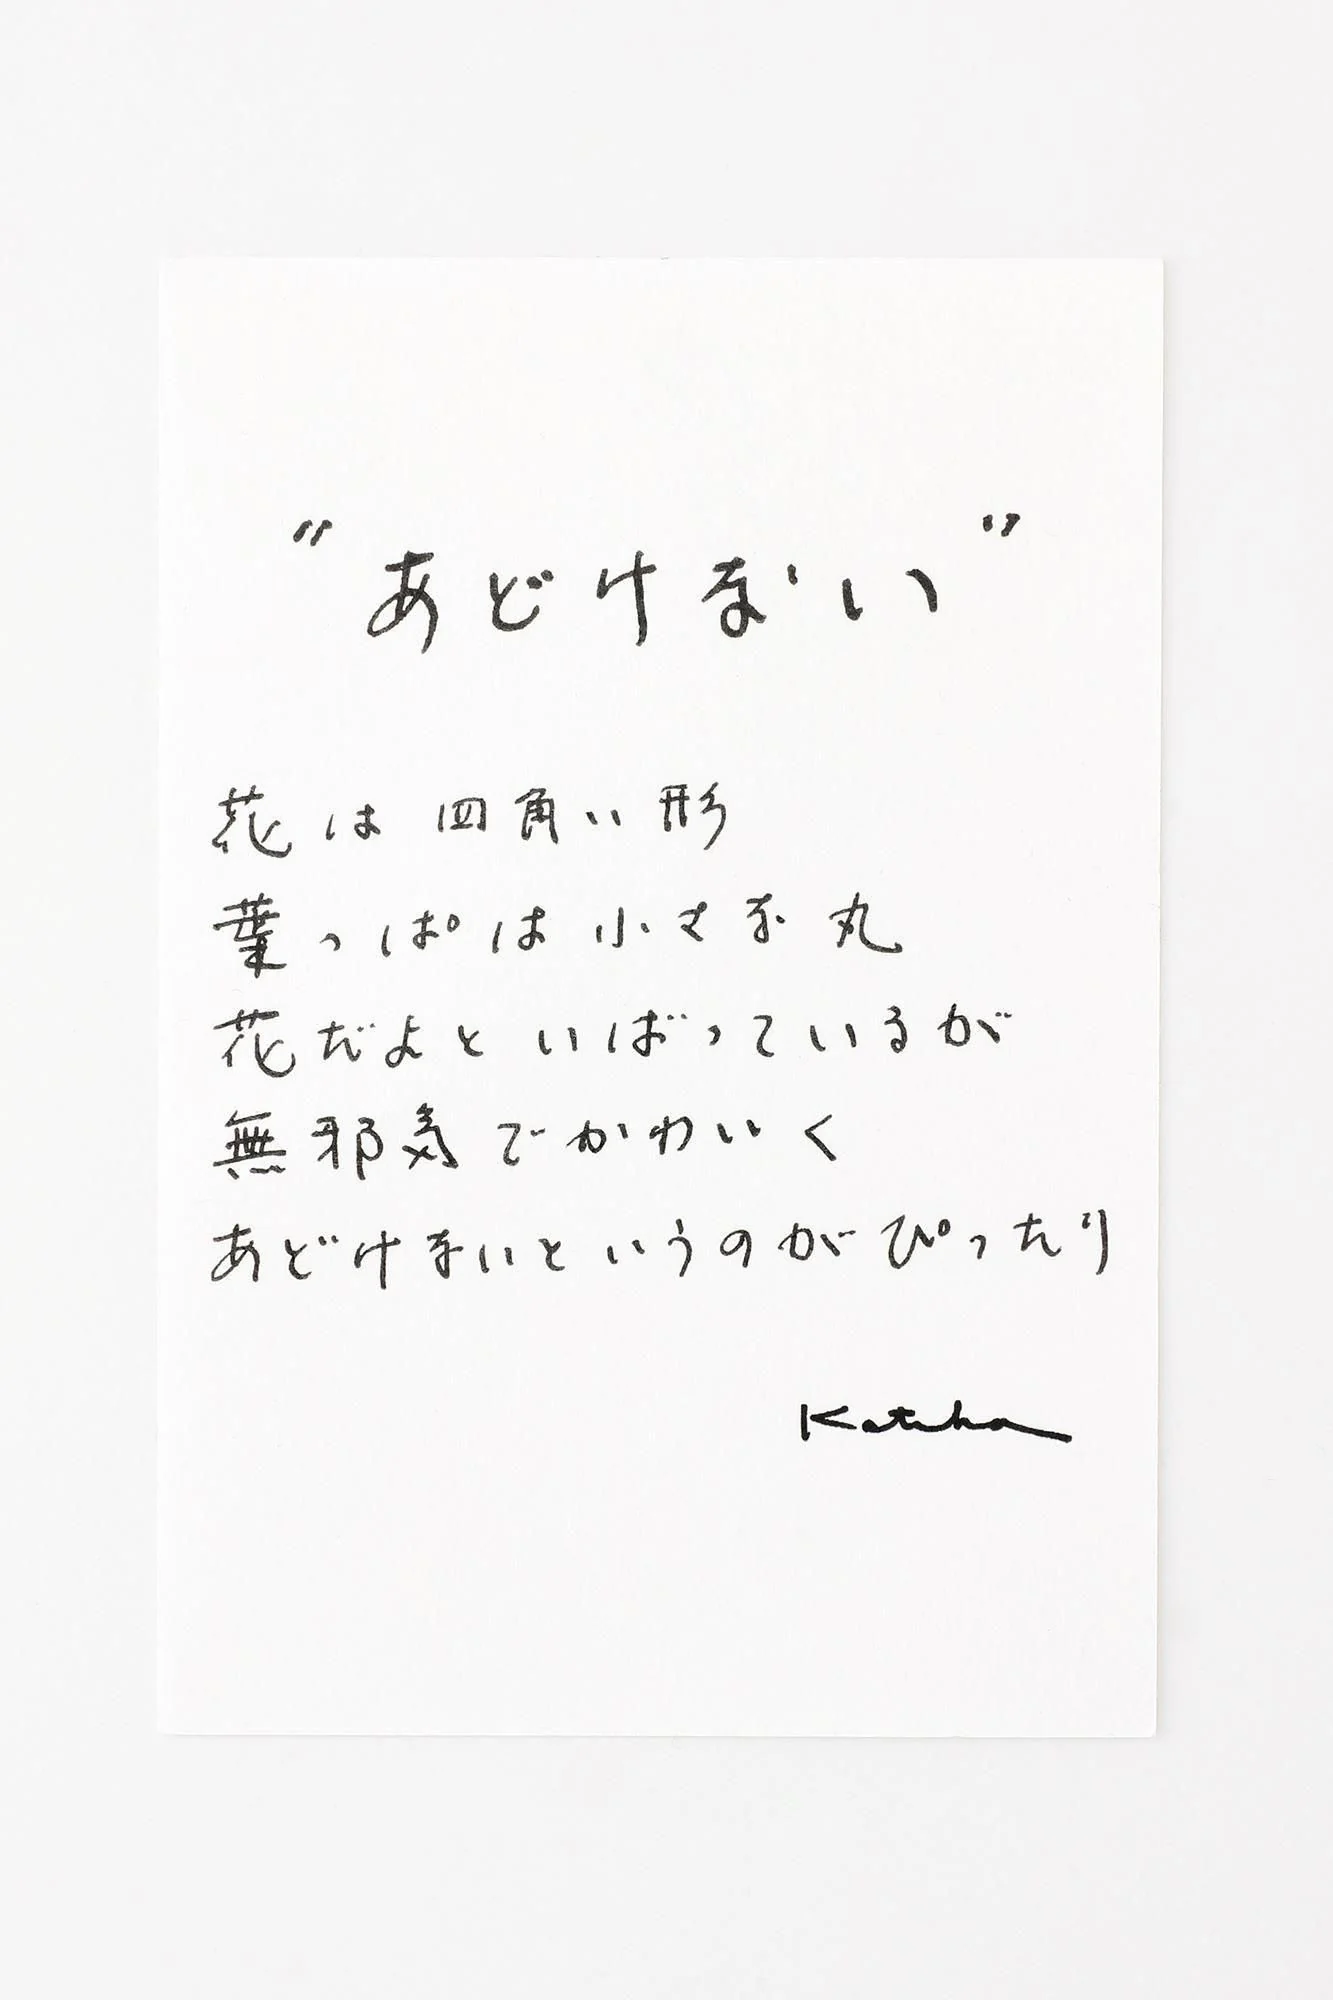 "あどけない"
花は四角い形
葉っぱは小さな丸
花だよといばっているが
無邪気でかわいく
あどけないというのがぴったり
Katsuka